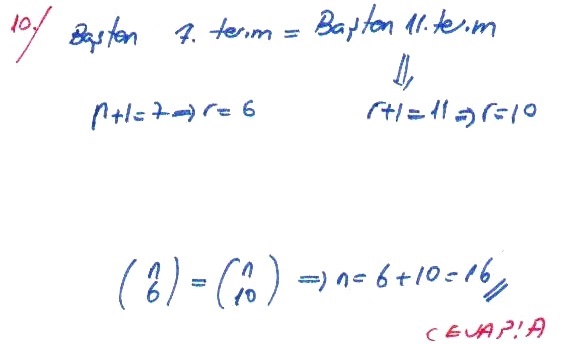 10./ Baştan 7. terim = Baştan 11. terim
⇓
r+1=7 ⇒ r=6 r+1=11 ⇒ r=10
(n 6) = (n 10) ⇒ n=6+10=16
CEVAP: A